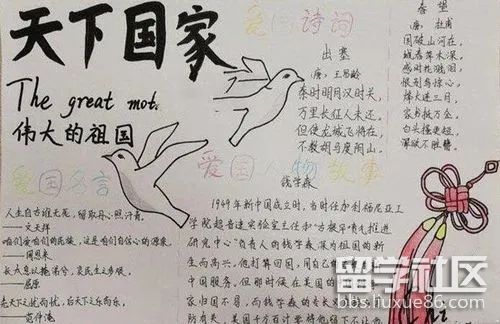 天下国家
The great mot
伟大的祖国
爱国诗词
出塞
唐：王昌龄
秦时明月汉时关，
万里长征人未还。
但使龙城飞将在，
不教胡马度阴山。
春望
唐：杜甫
国破山河在，
城春草木深。
感时花溅泪，
恨别鸟惊心。
烽火连三月，
家书抵万金。
白头搔更短，
浑欲不胜簪。
爱国名言
人生自古谁无死，留取丹心照汗青。
——文天祥
咱们爱咱们的民族，这是咱们自信心的源泉。
——周恩来
长太息以掩涕兮，哀民生之多艰。
——屈原
先天下之忧而忧，后天下之乐而乐。
——范仲淹
爱国人物故事
钱学森
1949年新中国成立时，当时任加利福尼亚工
学院超音速实验室主任和
研究中心"负责人的钱学森深为祖国的新
生而高兴，他打算回国，用自己
中国服务，但那时候在美国的
家归国不易，而钱学森的专长
防有关，美国千方百计要将他留下不让
留学社区
bbs.liuxue86.com